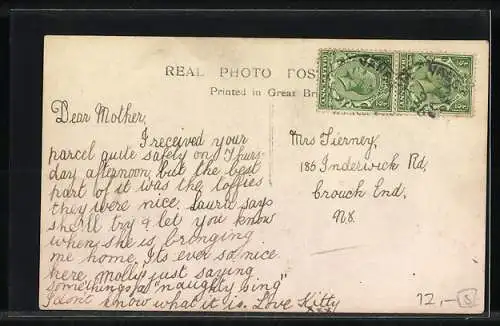 REAL PHOTO POST
Printed in Great Bri
Dear Mother,
I received your
parcel quite safely on Thurs-
day afternoon, but the best
part of it was the toffies
they were nice. Laurie says
she'll try & let you know
when she is bringing
me home. It's ever so nice
here, Molly's just saying
something, a "naughty bing"
I don't know what it is. Love Kitty
xxx
Mrs Tierney,
185 Inderwick Rd,
Crouch End,
N.8.
12,- S